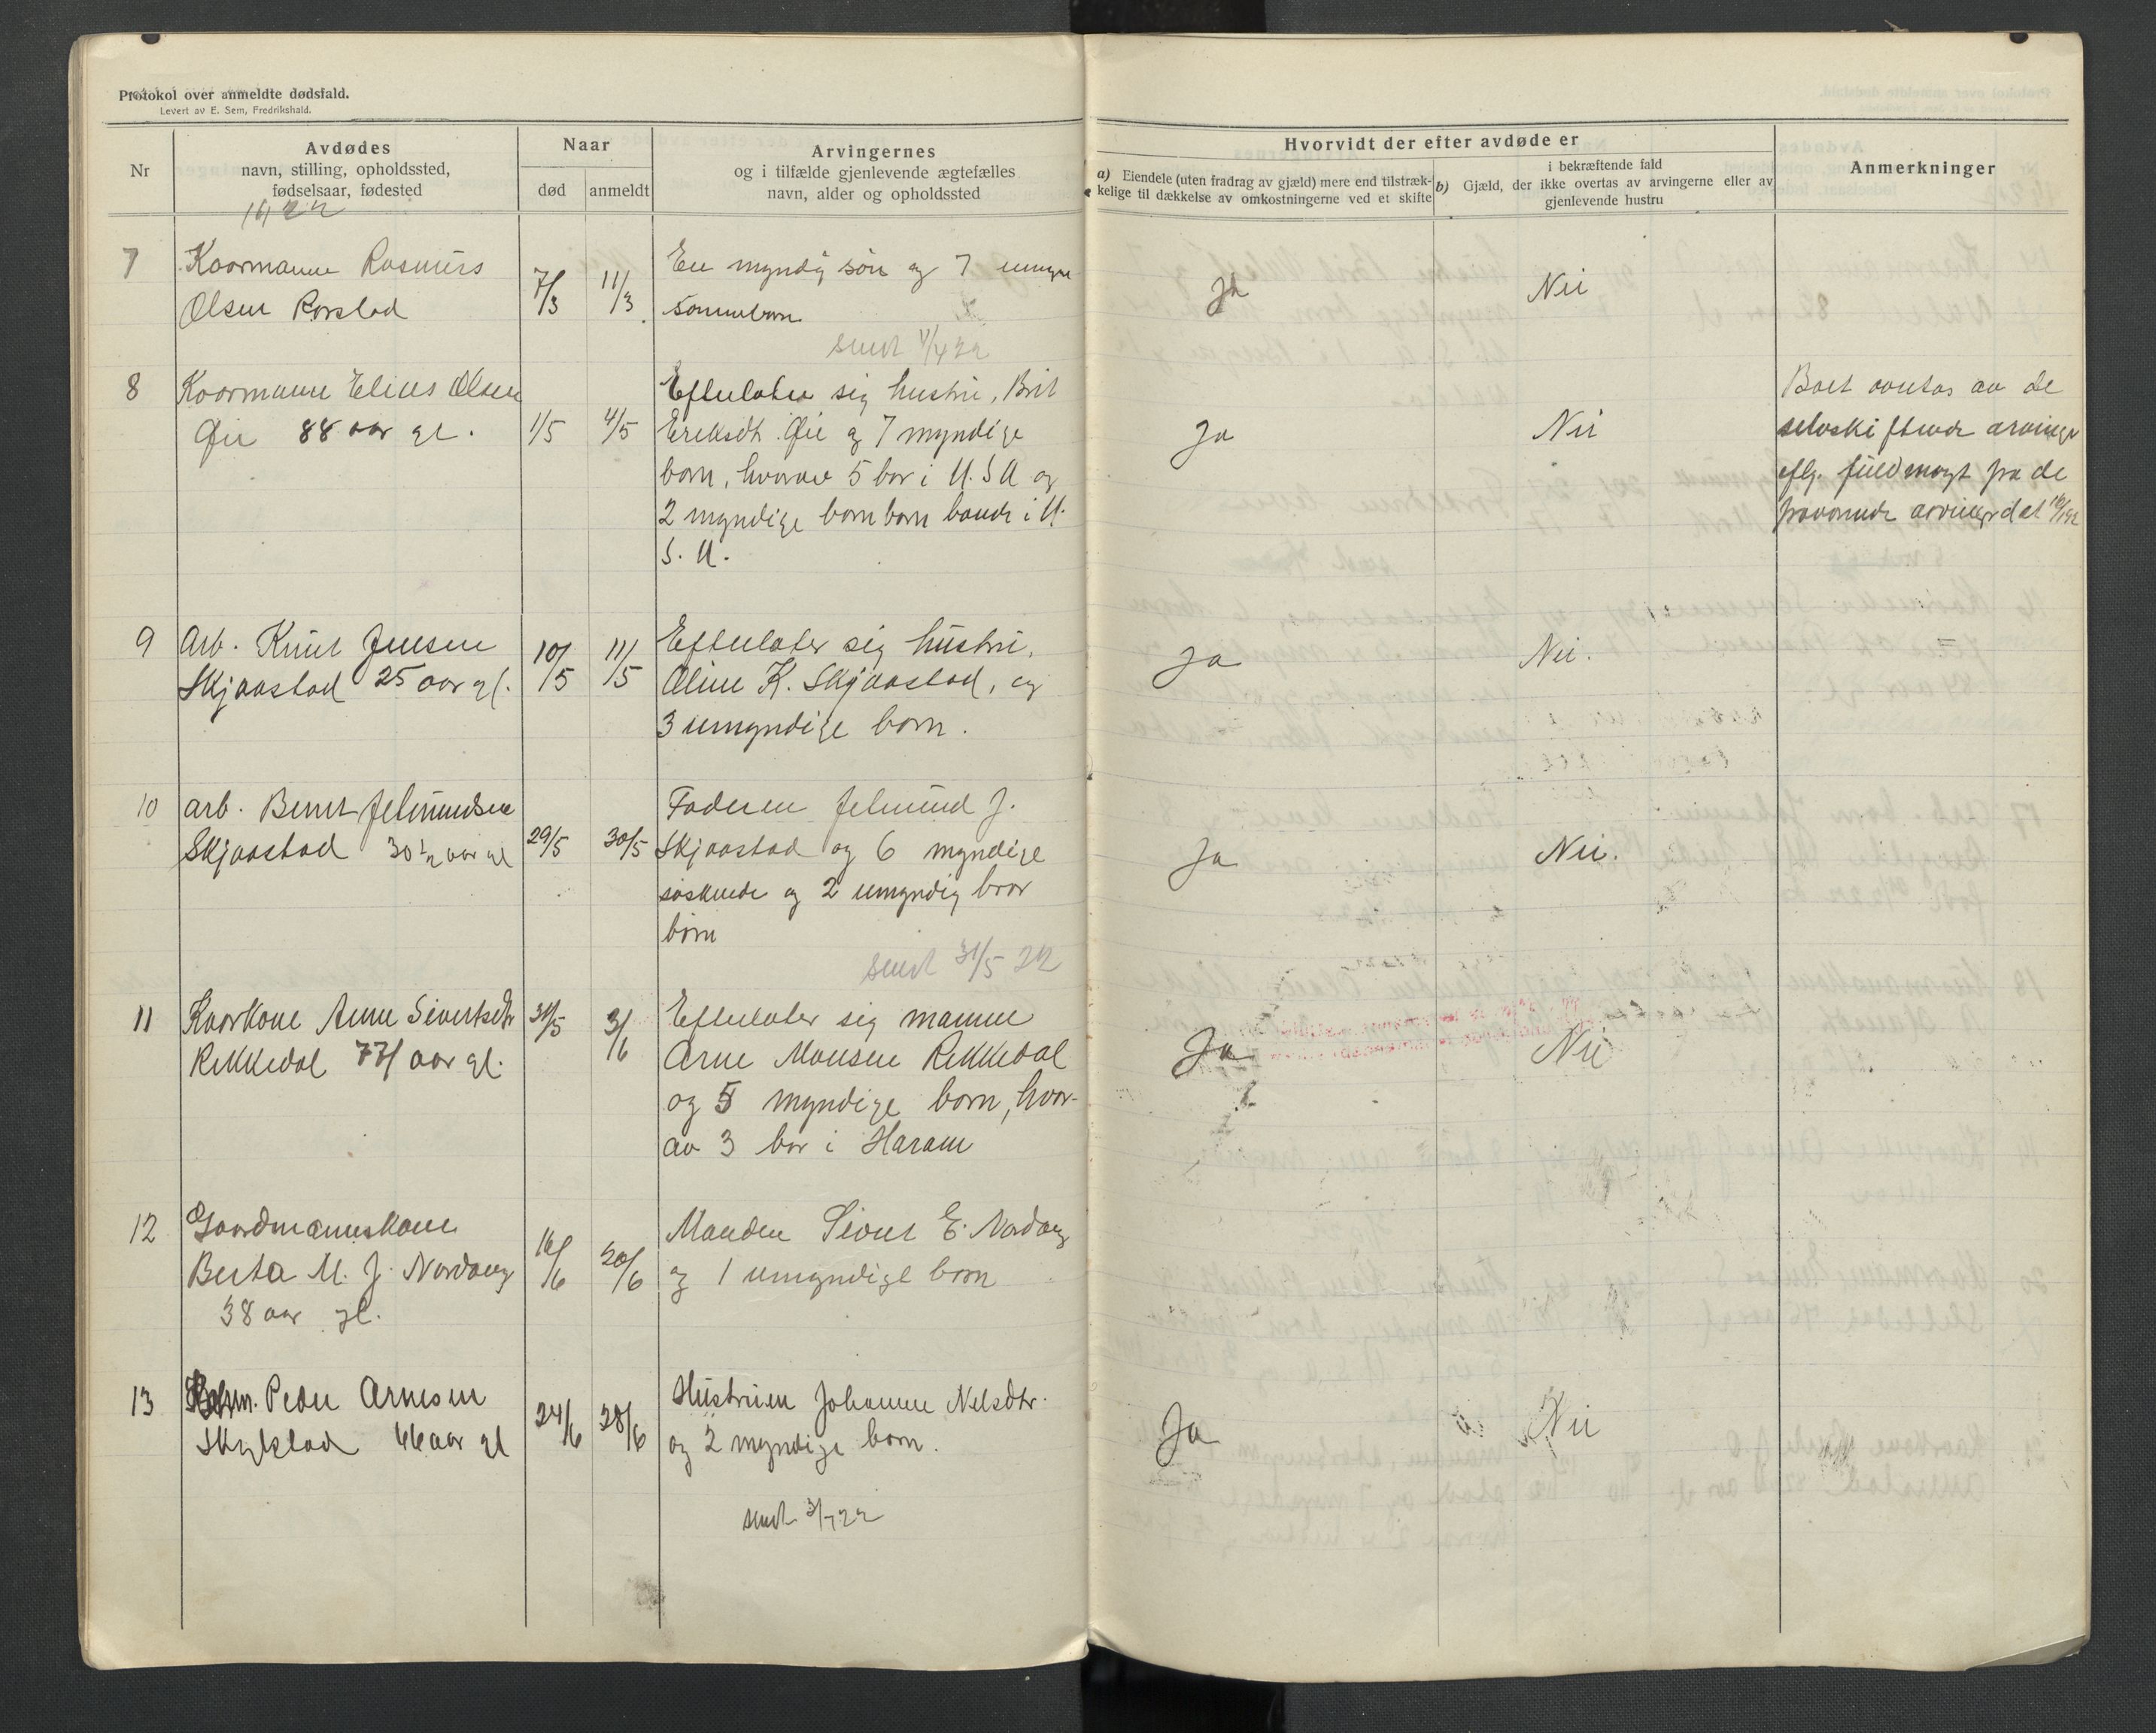 Protokol over anmeldte dødsfald.
Levert av E. Sem, Fredrikshald.
Nr
Avdødes
navn, stilling, opholdssted,
fødselsaar, fødested
Naar
død
anmeldt
Arvingernes
og i tilfælde gjenlevende ægtefælles
navn, alder og opholdssted
Hvorvidt der efter avdøde er
a) Eiendele (uten fradrag av gjæld) mere end tilstræk-
kelige til dækkelse av omkostningerne ved et skifte
i bekræftende fald
b) Gjæld, der ikke overtas av arvingerne eller av
gjenlevende hustru
Anmerkninger
1922
7
Kaarmann Rasmus
Olsen Rørstad
7/3
11/3
En myndig søn og 7 umyn
sønnebørn
sendt 11/4 22
Ja
Nei
8
Kaarmann Elias Olsen
Øie 88 aar gl.
1/5
4/5
Efterlater sig hustru, Brit
Eriksdt. Øie og 7 myndige
børn, hvorav 5 bor i U.S.A og
2 myndige barnbarn boende i U.
S. A.
Ja
Nei
Boet overtas av de
selvskiftende arvinger
iflg. fuldmagt fra de
fraværende arvinger dat
9
Arb. Knut Jensen
Skjaastad 25 aar gl.
10/5
11/5
Efterlater sig hustru,
Oline K. Skjaastad, og
3 umyndige børn.
Ja
Nei.
10
Arb. Bernt Jetmundsen
Skjaastad 30 1/2 aar gl
29/5
30/5
Faderen Jetmund J.
Skjaastad og 6 myndige
søskende og 2 umyndig bror
børn
sendt 31/5 22
Ja
Nei.
11
Kaarkone Anne Sivertsdtr
Rekkedal 77 aar gl.
31/5
3/6
Efterlater sig manne
Arne Monsen Rekkedal
og 5 myndige børn, hvor-
av 3 bor i Haram
Ja
Nei
12
Gaardmannskone
Berta M. J. Nordang
38 aar gl.
16/6
20/6
Manden Sivert E. Nordang
og 1 umyndige børn
13
Peder Arnesen
Skylstad 66 aar gl
24/6
28/6
Hustruen Johanne Nelsdtr.
og 2 myndige børn.
sendt 3/7 22
Ja
Nei